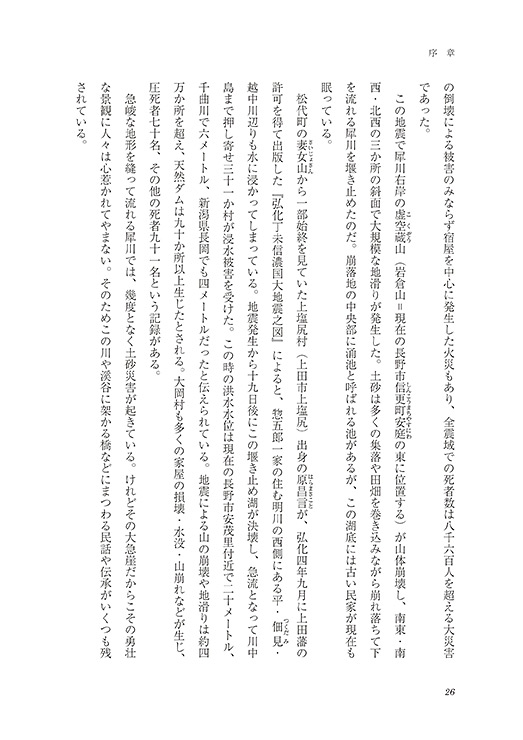 序　章
の倒壊による被害のみならず宿屋を中心に発生した火災もあり、全震域での死者数は八千六百人を超える大災害
であった。
　この地震で犀川右岸の虚空蔵山（岩倉山＝現在の長野市信更町安庭の東に位置する）が山体崩壊し、南東・南
西・北西の三か所の斜面で大規模な地滑りが発生した。土砂は多くの集落や田畑を巻き込みながら崩れ落ちて下
を流れる犀川を堰き止めたのだ。崩落地の中央部に涌池と呼ばれる池があるが、この湖底には古い民家が現在も
眠っている。
　松代町の妻女山から一部始終を見ていた上塩尻村（上田市上塩尻）出身の原昌言が、弘化四年九月に上田藩の
許可を得て出版した『弘化丁未信濃国大地震之図』によると、惣五郎一家の住む明川の西側にある平・佃見・
越中川辺りも水に浸かってしまっている。地震発生から十九日後にこの堰き止め湖が決壊し、急流となって川中
島まで押し寄せ三十一か村が浸水被害を受けた。この時の洪水水位は現在の長野市安茂里付近で二十メートル、
千曲川で六メートル、新潟県長岡でも四メートルだったと伝えられている。地震による山の崩壊や地滑りは約四
万か所を超え、天然ダムは九十か所以上生じたとされる。大岡村も多くの家屋の損壊・水没・山崩れなどが生じ、
圧死者七十名、その他の死者九十一名という記録がある。
　急峻な地形を縫って流れる犀川では、幾度となく土砂災害が起きている。けれどその大急崖だからこその勇壮
な景観に人々は心惹かれてやまない。そのためこの川や渓谷に架かる橋などにまつわる民話や伝承がいくつも残
されている。
26